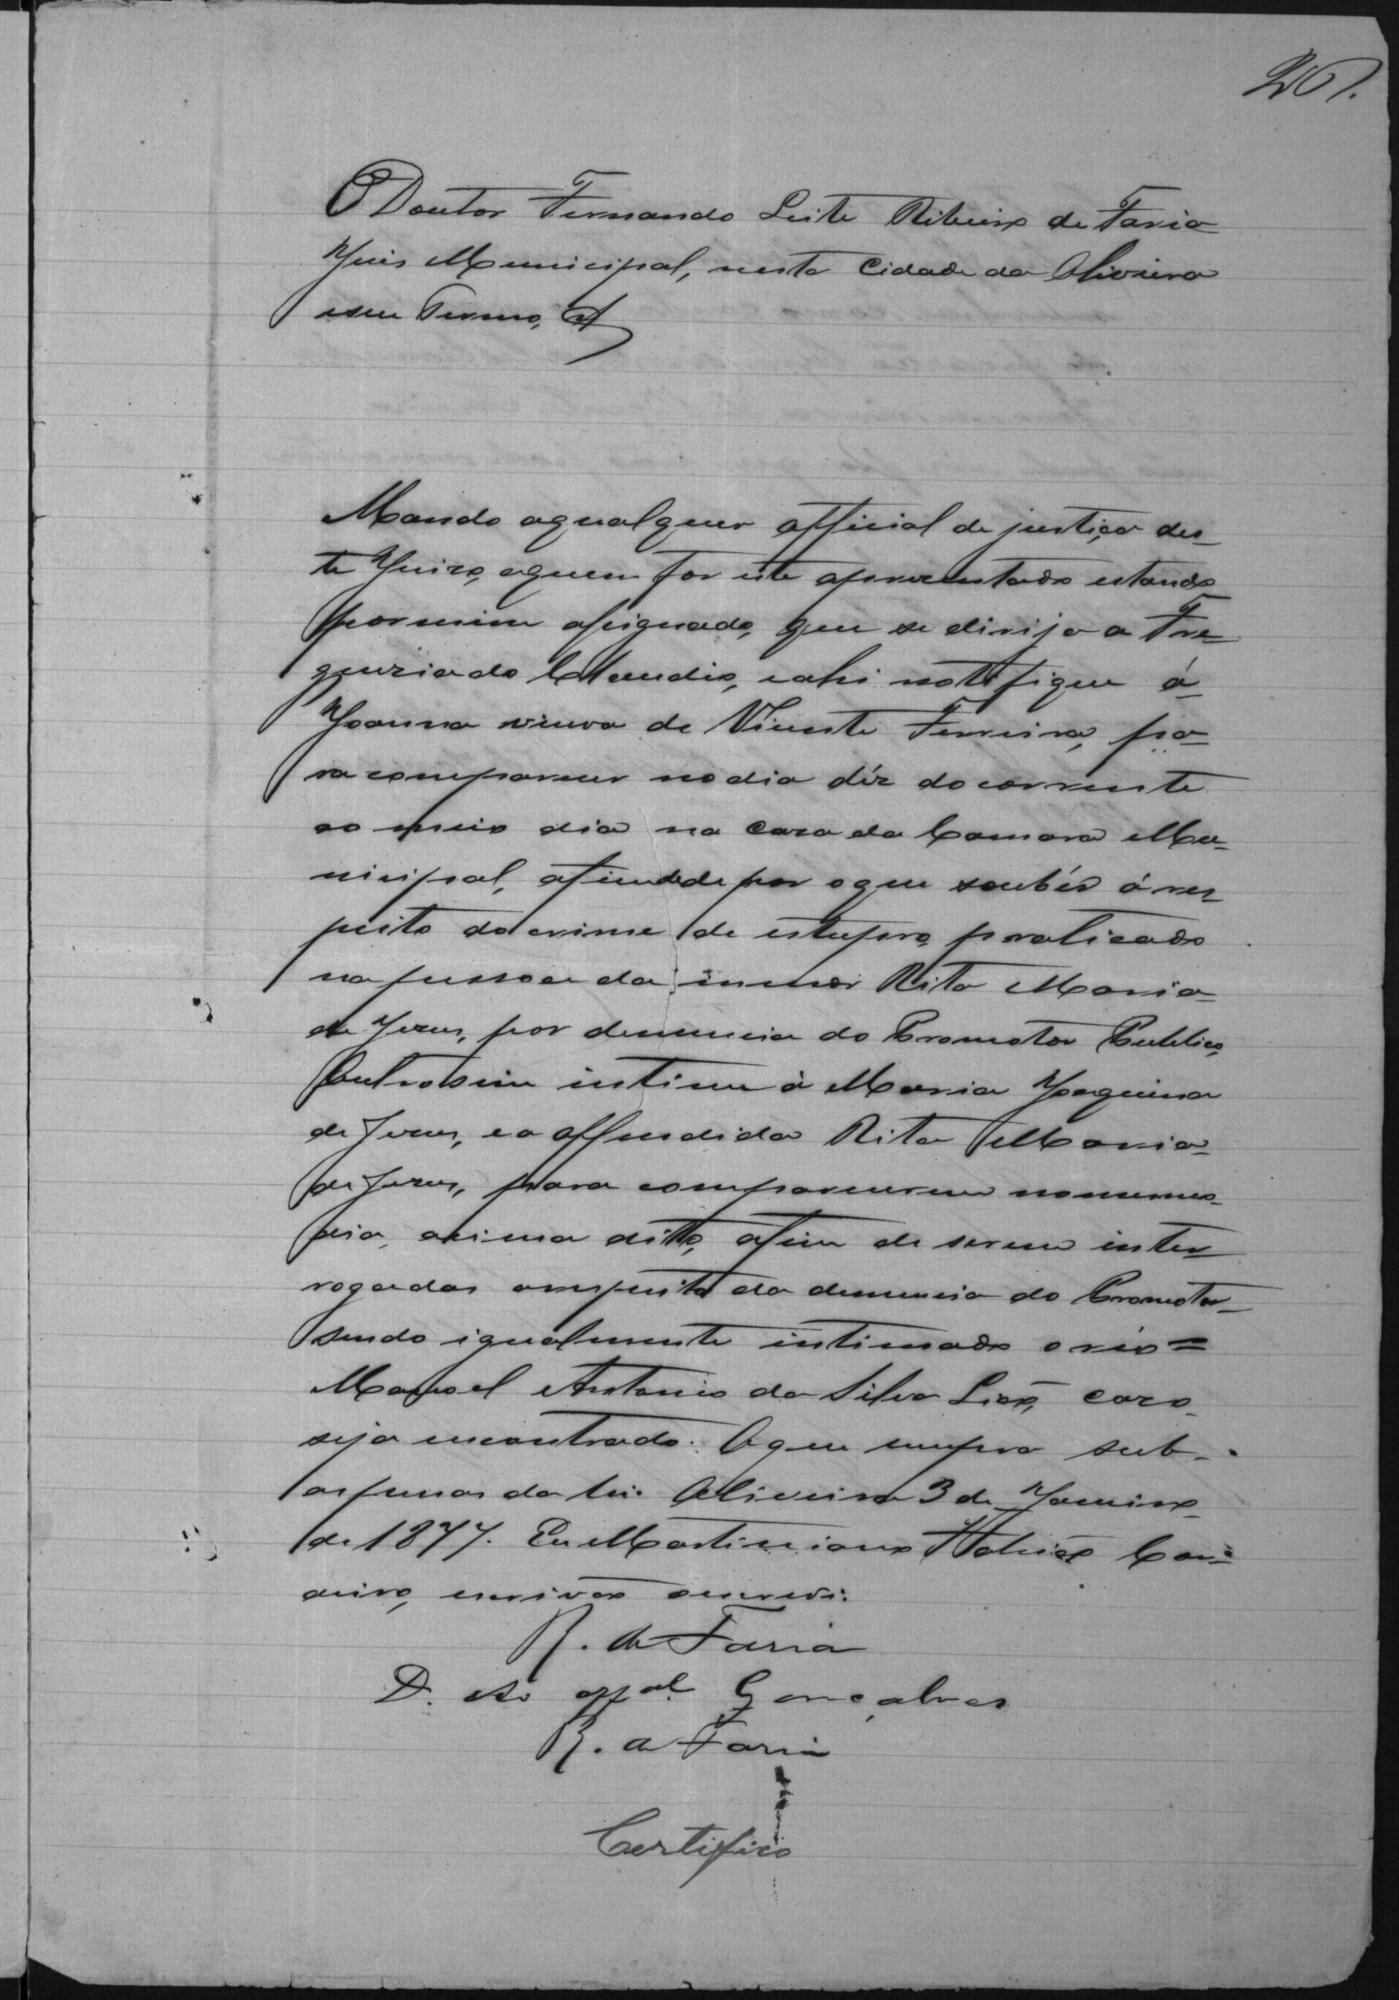 26.
O Doutor Fernando Leite Ribeiro de Faria
Juis Municipal, nesta Cidade da Oliveira
eseu Termo, &
Mando aqualquer official de justiça des-
te Juizo, aquem for este aprezentado estando
pormim assignado, que se dirija a Fre-
guezia do Claudio, eahi notifique á
Joanna viuva de Vicente Ferreira, pa-
ra comparecer nodia déz do corrente
ao meio dia na Caza da Camara Mu-
nicipal, afim de depor oque soubér á res-
peito do crime de estupro, praticado
na pessoa da menor Rita Maria
de Jezus, por denuncia do Promotor Publico,
Outrosim intime á Maria Joaquina
de Jezus, e a offendida Rita Maria
de Jezus, para comparecerem nomesmo
dia, acima ditto, afim de serem inter-
rogadas arespeito da denuncia do Promotor
sendo igualmente intimado o réo =
Manoel Antonio da Silva Leão, cazo
seja encontrado. Oque cumpra sub-
aspenas da lei. Oliveira 3 de Janeiro
de 1877. Eu Martiniano Cor-
deiro, escrivão escrevi.
R. de Faria
D. Ao offal. Gonçalves
R. de Faria
Certifico